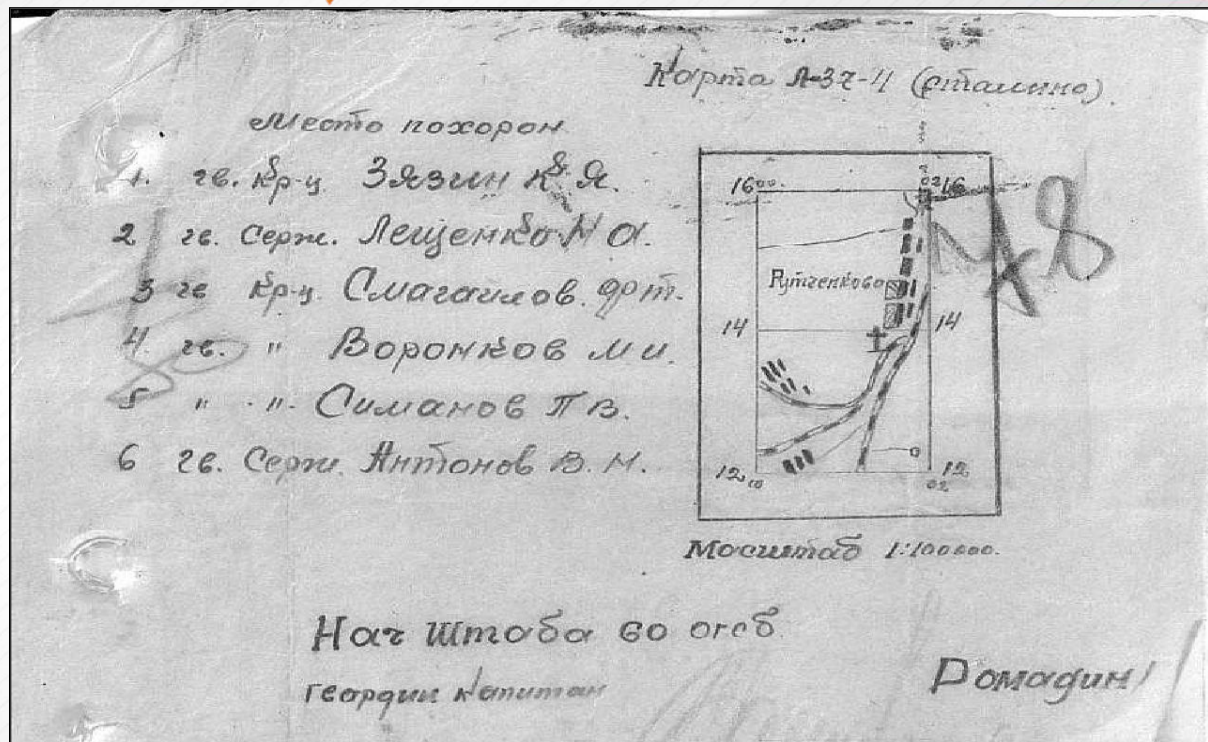 Карта Л-37-4 (сталино)
Место похорон
1. гв. кр-ц Зязин К.Я.
2 гв. Серж. Лещенко Н А.
3 гв кр-ц. Смагаилов.
4. гв. " Воронков М И.
5 " " Симанов П В.
6 гв. Серж. Антонов В. Н.
16 00 02 16
Рутченково
14 14
12 00 02 12
Мосштаб 1:100000.
Нач Штаба 60
гвардии капитан
Ромадин